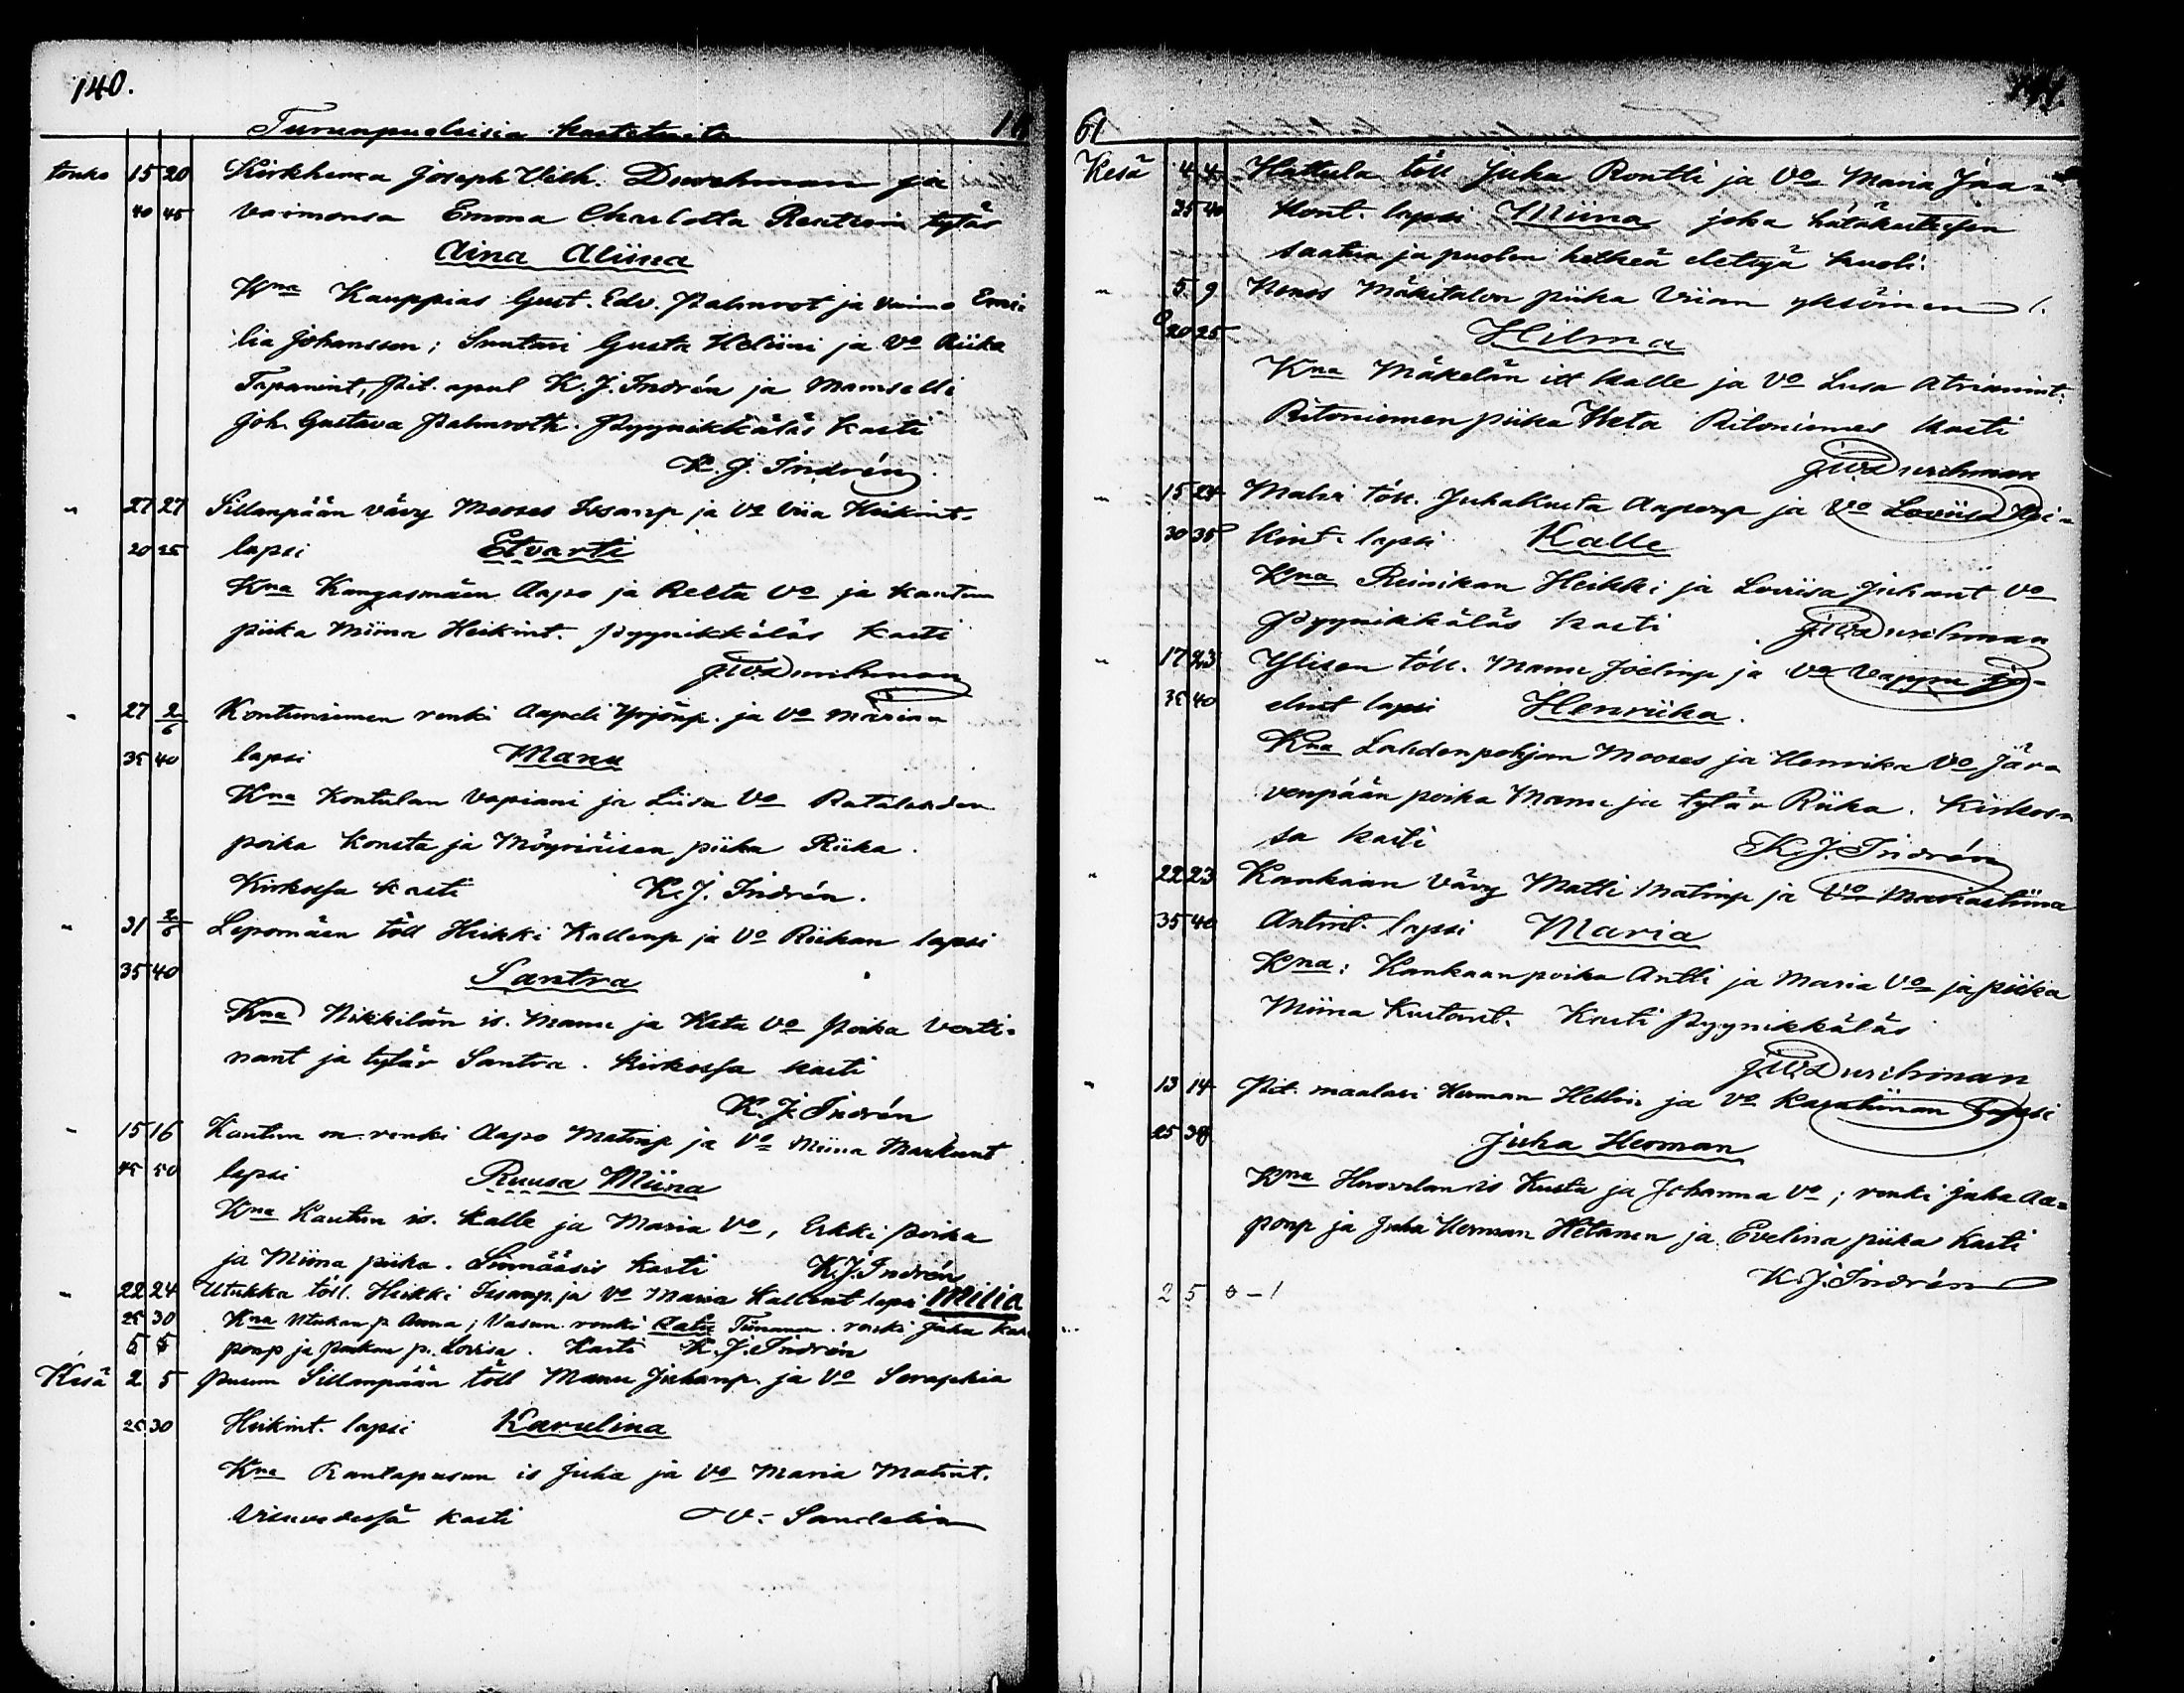 140.
Turunpuolisia kastetuita 18
touko 15 20 Kirkherra Joseph Vilh. Durchman ja
40 45 vaimonsa Emma Charlotta tytär
Aina Aliina
Kna Kauppias Gust. Edv. Palmroot ja vaimo Emi-
lia Johansson; Suntari Gusta Heliini ja Vo Riika
Tapanint, Pit. apul K. J. Indrén ja Mamselli
Joh. Gustava Palmroth. Pyynikkäläs kasti
K. J. Indrén
" 27 27 Sillanpään vävy Mooses Iisamp ja Vo Viia Heikint.
20 25 lapsi Etvarti
Kna Kangasmäen Aapo ja Reeta Vo ja Kantun
piika Miina Heikint. Pyynikkäläs kasti
J.W. Durchman
" 27 2/6 Kontunimen renki Aapeli Yrjönp. ja Vo Marian
35 40 lapsi Manu
Kna Kontulan Vapiani ja Liisa Vo Ratalahden
poika Konsta ja piika Riika.
Kirkossa kasti K. J. Indrén.
" 31 2/6 Lepomäen töll Heikki Kallenp ja Vo Riikan lapsi
35 40 Santra
Kna Nikkilän is. Manu ja Keta Vo Poika Verti-
nant ja tytär Santra. Kirkossa kasti
K. J. Indrén
" 15 16 Kantun m. renki Aapo Matinp ja Vo Miina Markunt
45 50 lapsi Ruusa Miina
Kna Kantun is. Kalle ja Maria Vo, Erkki poika
ja Miina piika. kasti K. J. Indrén
" 22 24 Utukka töll. Heikki Iisamp. ja Vo Maria Kallent lapsi Milia
25 30 Kna Utukan p. Anna; Vasun renki renki Juha
5 5 ponp ja p. Lovisa. Kasti K. J. Indrén
Kesä 2 5 Puson Sillanpään töll Manu Juhanp. ja Vo Seraphia
25 30 Heikint. lapsi Karulina
Kna Rantapuson is Juha ja Vo Maria Matint.
Visuvedessä kasti V. Sandelin
61 141
Kesä 4 4 Hattula töll Juha Rontti ja Vo Maria Jaa-
35 40 kont. lapsi Miina joka hätäkasteesen
saatua ja puolen hetkeä elettyä kuoli.
" 5 9 Mäkitalon piika Viian yksöinen
20 25 Hilma
Kna Mäkelän itt Kalle ja Vo Lusa Atriamint.
Ritoniemen piika Keta Ritoniemes kasti
J.W. Durchman
" 15 24 Malvi töll. Juha Kusta Aaponp ja Vo Loviisa Hei-
30 35 kint. lapsi Kalle
Kna Reinikan Heikki ja Loviisa Juhant Vo
Pyynikkäläs kasti J.W. Durchman
" 17 23 Ylisen töll. Manu Joelinp ja Vo Vappu Jo-
35 40 elint lapsi Henriika.
Kna Lahdenpohjan Mooses ja Henrika Vo Järv-
venpään poika Manu ja tytär Riika. Kirkos-
sa kasti K. J. Indrén
" 22 23 Kankaan vävy Matti Matinp ja Vo Mariastiina
35 40 Antint. lapsi Maria
Kna: Kankaan poika Antti ja Maria Vo ja piika
Miina Kustant. Kasti Pyynikkäläs
J.W. Durchman
" 13 14 Pit. maalari Herman Hellin ja Vo Karoliinan lapsi
25 30 Juha Herman
Kna is Kusta ja Johanna Vo; renki Juha Aa-
ponp ja Juha Herman Hetanen ja Evelina piika Kasti
K. J. Indrén
2 5 0 - 1